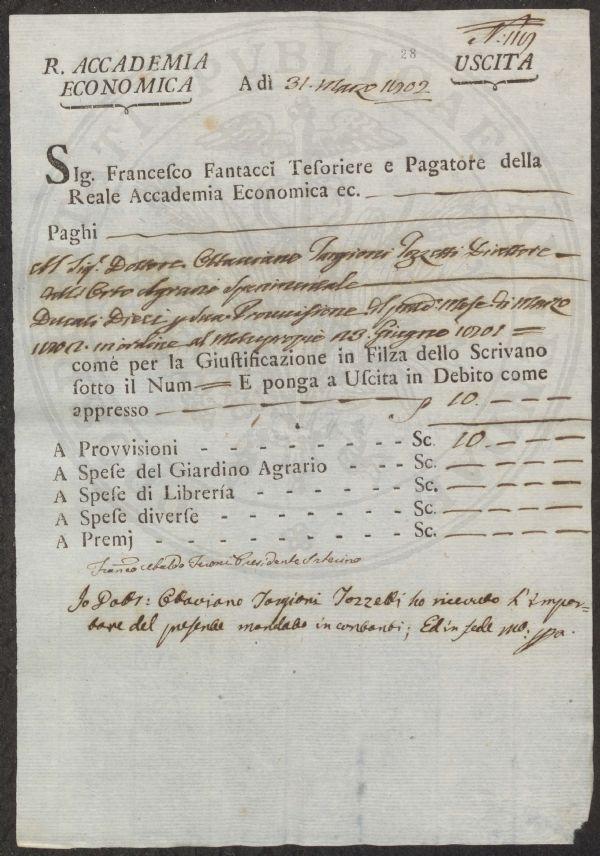 N: 119
28
R. ACCADEMIA
ECONOMICA
USCITA
A dì 31. Marzo 1802
SIg. Franceſco Fantacci Teſoriere e Pagatore della
Reale Accademia Economica ec.
Paghi
Al Sig.r Dottore Ottaviano Targioni Tozzetti Direttore
dell'Orto Agrario Sperimentale
Ducati Dieci p sua Provvisione del mese di Marzo
1802. in ordine al Motuproprio 23 Giugno 1801 =
come per la Giuſtificazione in Filza dello Scrivano
ſotto il Num = E ponga a Uſcita in Debito come
appreſſo 10. — — —
A Provviſioni - - - - - - - - Sc. 10. — — —
A Speſe del Giardino Agrario - - - - Sc. — — — —
A Speſe di Librería - - - - - - Sc. — — — —
A Speſe diverſe - - - - - - - Sc. — — — —
A Premj - - - - - - - - - Sc. — — — —
Presidente Interino
Io Dott: Ottaviano Targioni Tozzetti ho ricevuto l'Impor=
tare del presente mandato in contanti; Ed in fede mo: ppa.